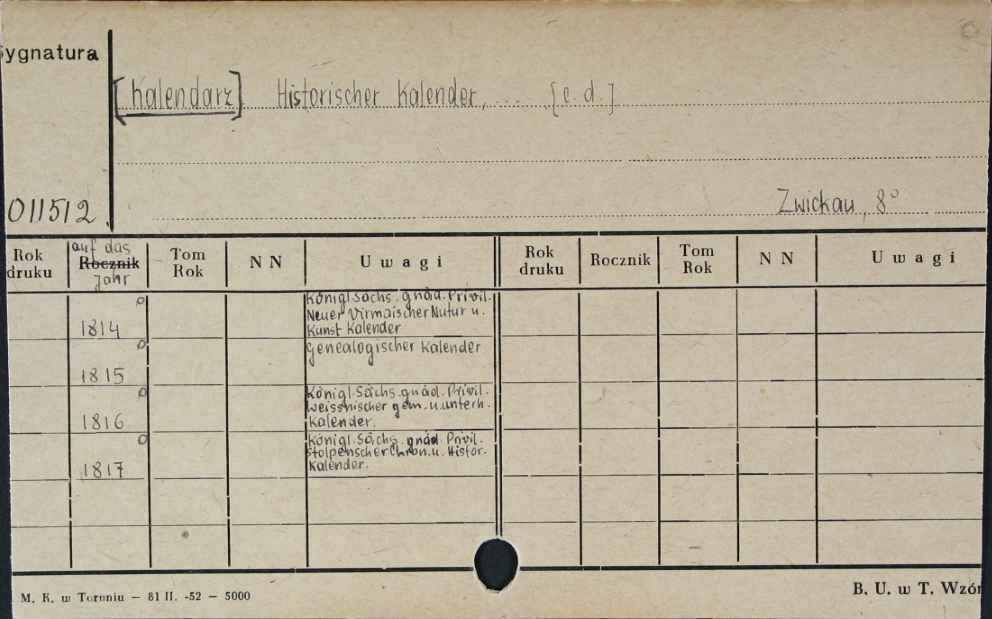 Sygnatura
[Kalendarz] Historischer Kalender, ... [c. d.]
011512
Zwickau, 8°
Rok druku
auf das Rocznik Jahr
Tom Rok
N N
Uwagi
Rok druku
Rocznik
Tom Rok
N N
Uwagi
1814
Königl. Sächs. gnäd. Privil.
Neuer Virmaischer Nutur u.
Kunst Kalender
1815
Genealogischer Kalender
1816
Königl. Sächs. gnäd. Privil.
weissnischer gem. u. unterh.
Kalender.
1817
Königl. Sächs. gnäd. Privil.
Stolpenscher Chron. u. Histor.
Kalender.
M. K. w Toruniu — 81 II. -52 — 5000
B. U. w T. Wzór